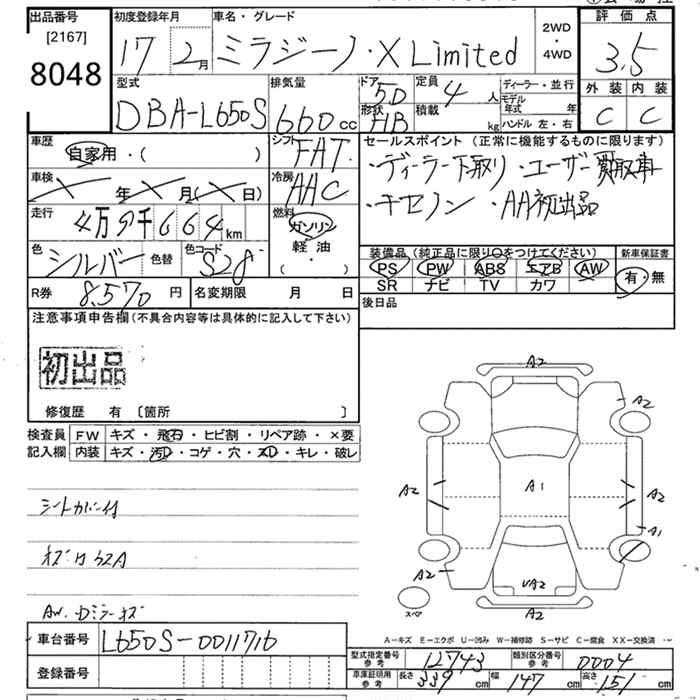 出品番号 初度登録年月 車名・グレード 評価点
[2167]
8048
17 2月 ミラジーノ・X Limited
2WD
・
4WD
3.5
外装 内装
C C
型式 排気量 ドア 定員 ディーラー・並行
DBA-L650S 660cc 5D 4人
モデル年式 年
形状 積載 kg ハンドル 左・右
HB
車歴 シフト
自家用・( ) FAT
セールスポイント (正常に機能するものに限ります)
・ディーラー下取り・ユーザー買取車
車検 冷房
× 年 × 月(×日) AAC
・AA初出品
走行 燃料
4万9千664km ガソリン
軽油
・
( )
色 色替 色コード
シルバー S28
装備品(純正品に限り○をつけてください) 新車保証書
PS PW ABS エアB AW
SR ナビ TV カワ
有・無
R券 8,570円 名変期限 月 日
後日品
注意事項申告欄(不具合内容等は具体的に記入して下さい)
初出品
修復歴 有 [箇所 ]
検査員 FW キズ・飛石・ヒビ割・リペア跡・×要
記入欄 内装 キズ・汚D・コゲ・穴・スD・キレ・破レ
シートカバー付
AW.
A2
A2
A2
A1
A2
A1
A2
UA2
A2
スペア
A-キズ E-エクボ U-凹み W-補修跡 S-サビ C-腐食 XX-交換済
車台番号 L650S-0011716
登録番号
型式指定番号 参考 12743 類別区分番号 参考 0004
車庫証明用 参考 長さ 339cm 幅 147cm 高さ 151cm